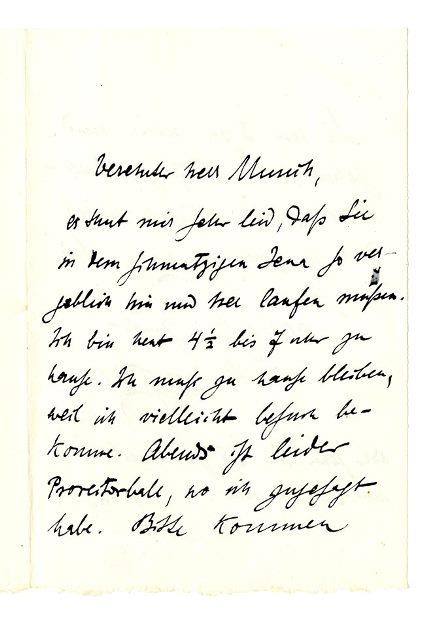 Verehrter Herr Munch,
es thut mir sehr leid, daß Sie
in dem schmutzigen Jena so ver-
geblich hin und her laufen mußen.
Ich bin heut 4½ bis 7 uhr zu
hause. Ich muß zu hause bleiben,
weil ich vielleicht besuch be-
komme. Abends ist leider
Prorektorball, wo ich zugesagt
habe. Bitte kommen